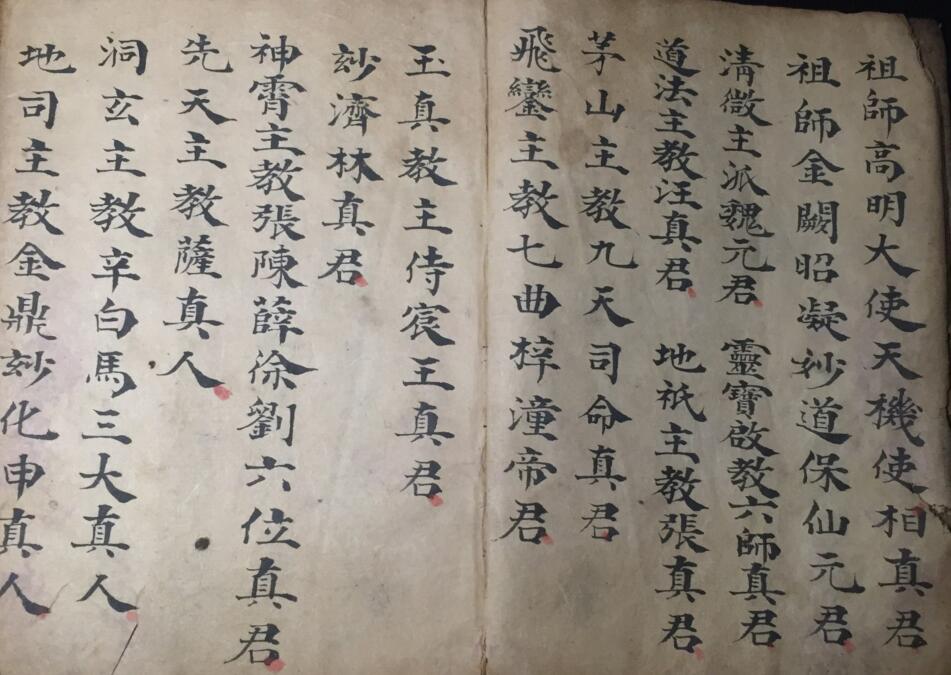 祖師高明大使天機使相真君
祖師金闕昭凝妙道保仙元君
清微主派魏元君 靈寶啟教六師真君
道法主教汪真君 地祇主教張真君
茅山主教九天司命真君
飛鸞主教七曲梓潼帝君
玉真教主侍宸王真君
玅濟林真君
神霄主教張陳薛徐劉六位真君
先天主教薩真人
洞玄主教辛白馬三大真人
地司主教金鼎玅化申真人